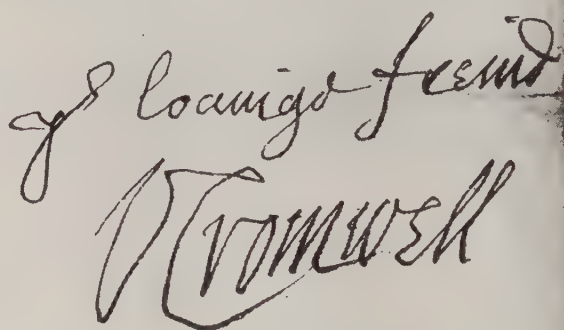 yr lovinge frend
O Cromwell